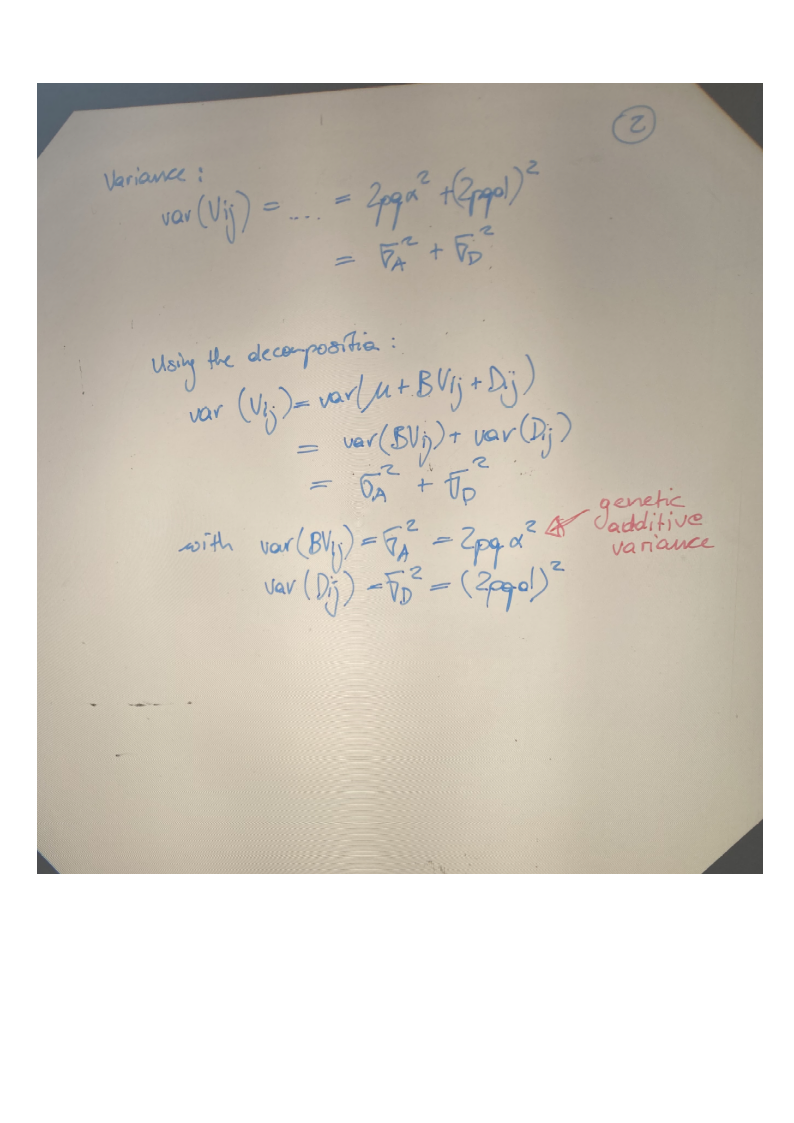 2
Variance:
var(Vij) = .... = 2pqα² + (2pqd)²
= σA² + σD²
Using the decomposition:
var (Vij) = var(μ + BVij + Dij)
= var(BVij) + var(Dij)
= σA² + σD²
with var(BVij) = σA² = 2pqα²
genetic
additive
variance
var(Dij) = σD² = (2pqd)²